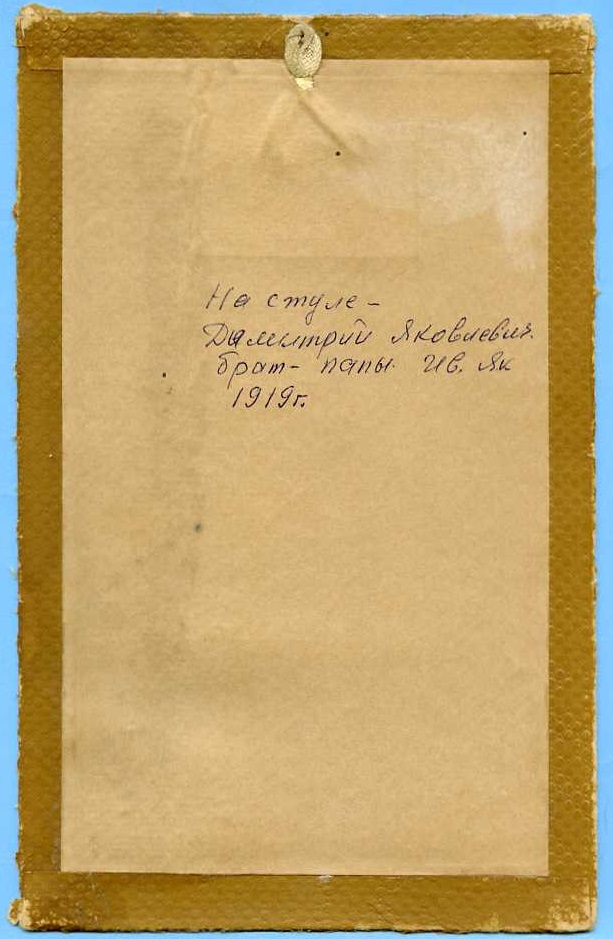 На стуле -
Дамитрий Яковлевич.
брат - папы. Ив. Як
1919г.